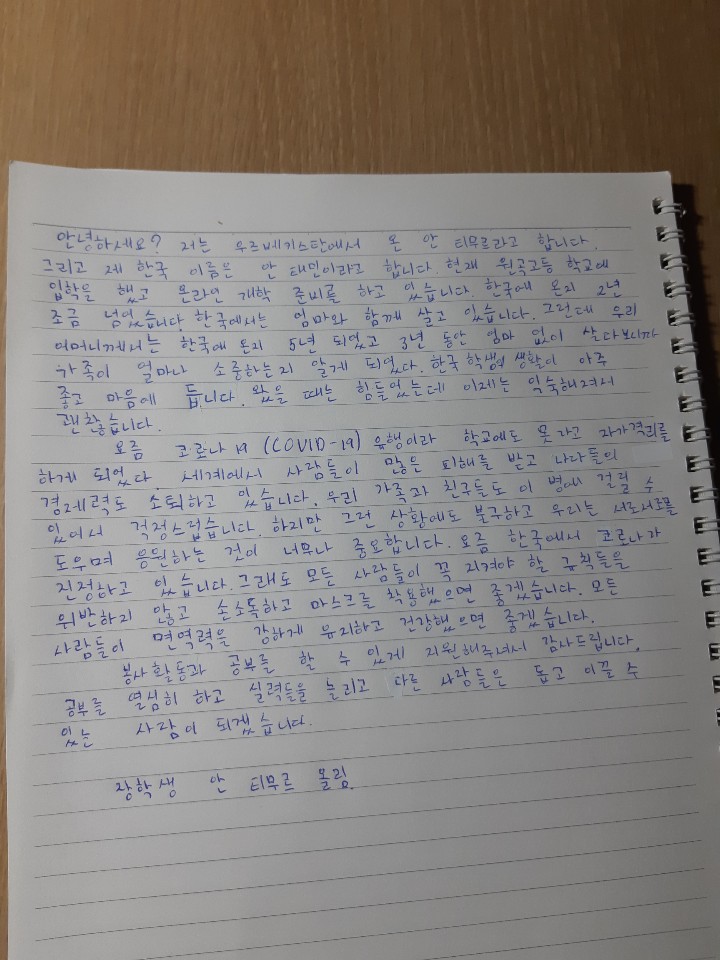 안녕하세요? 저는 우즈베키스탄에서 온 안 티무르라고 합니다.
그리고 제 한국 이름은 안 태민이라고 합니다. 현재 원곡고등 학교에
입학을 했고 온라인 개학 준비를 하고 있습니다. 한국에 온지 2년
조금 넘었습니다. 한국에서는 엄마와 함께 살고 있습니다. 그런데 우리
어머니께서는 한국에 온지 5년 되었고 3년 동안 엄마 없이 살다보니까
가족이 얼마나 소중하는지 알게 되었다. 한국 학생의 생활이 아주
좋고 마음에 듭니다. 왔을 때는 힘들었는데 이제는 익숙해져서
괜찮습니다.
요즘 코로나 19 (COVID-19) 유행이라 학교에도 못 가고 자가격리를
하게 되었다. 세계에서 사람들이 많은 피해를 받고 나라들의
경제력도 소퇴하고 있습니다. 우리 가족과 친구들도 이 병에 걸릴 수
있어서 걱정스럽습니다. 하지만 그런 상황에도 불구하고 우리는 서로서로를
도우며 응원하는 것이 너무나 중요합니다. 요즘 한국에서 코로나가
진정하고 있습니다. 그래도 모든 사람들이 꼭 지켜야 할 규칙들을
위반하지 않고 손소독하고 마스크를 착용했으면 좋겠습니다. 모든
사람들이 면역력을 강하게 유지하고 건강했으면 좋겠습니다.
봉사활동과 공부를 할 수 있게 지원해주셔서 감사드립니다.
공부를 열심히 하고 실력들을 늘리고 다른 사람들은 돕고 이끌 수
있는 사람이 되겠습니다.
장학생 안 티무르 올림.